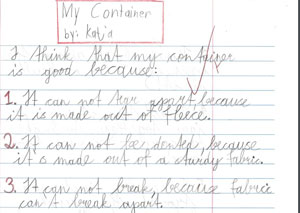 My Container
by: Katja
I think that my container
is good because:
1. It can not tear apart, because
it is made out of fleece.
2. It can not be dented, because
it is made out of a sturdy fabric.
3. It can not break, because fabric
can't break apart.